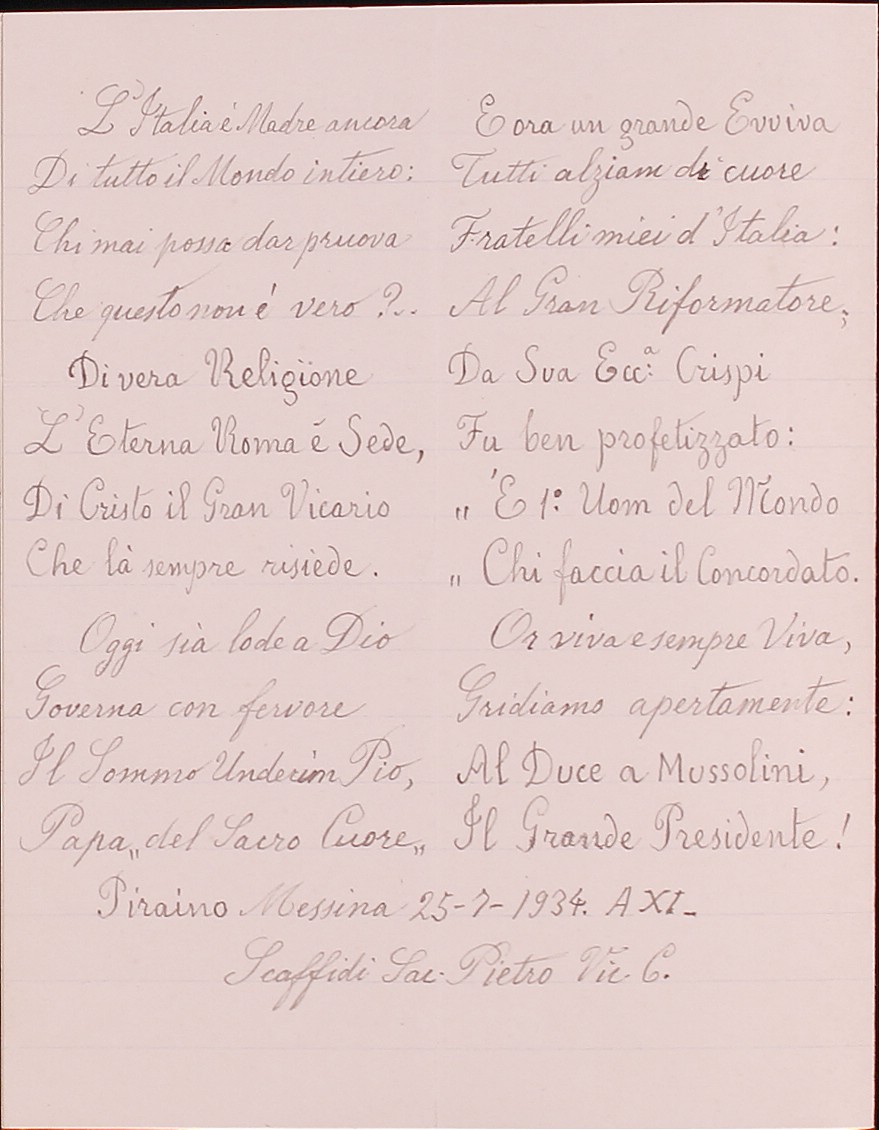 L'Italia é Madre ancora
Di tutto il Mondo intiero:
Chi mai possa dar pruova
Che questo non é vero?..
Di vera Religione
L'Eterna Roma é Sede,
Di Cristo il Gran Vicario
Che là sempre risiède.
Oggi sià lode a Dio
Governa con fervore
Il Sommo Undecim Pio,
Papa „del Sacro Cuore„
E ora un grande Evviva
Tutti alziam di cuore
Fratelli miei d'Italia:
Al Gran Riformatore;
Da Sua Ecc.ª Crispi
Fu ben profetizzato:
„ É 1º Uom del Mondo
„ Chi faccia il Concordato.
Or viva e sempre Viva,
Gridiamo apertamente:
Al Duce a Mussolini,
Il Grande Presidente!
Piraino Messina 25-7-1934. A XI-
Scaffidi Sac. Pietro Vic. C.